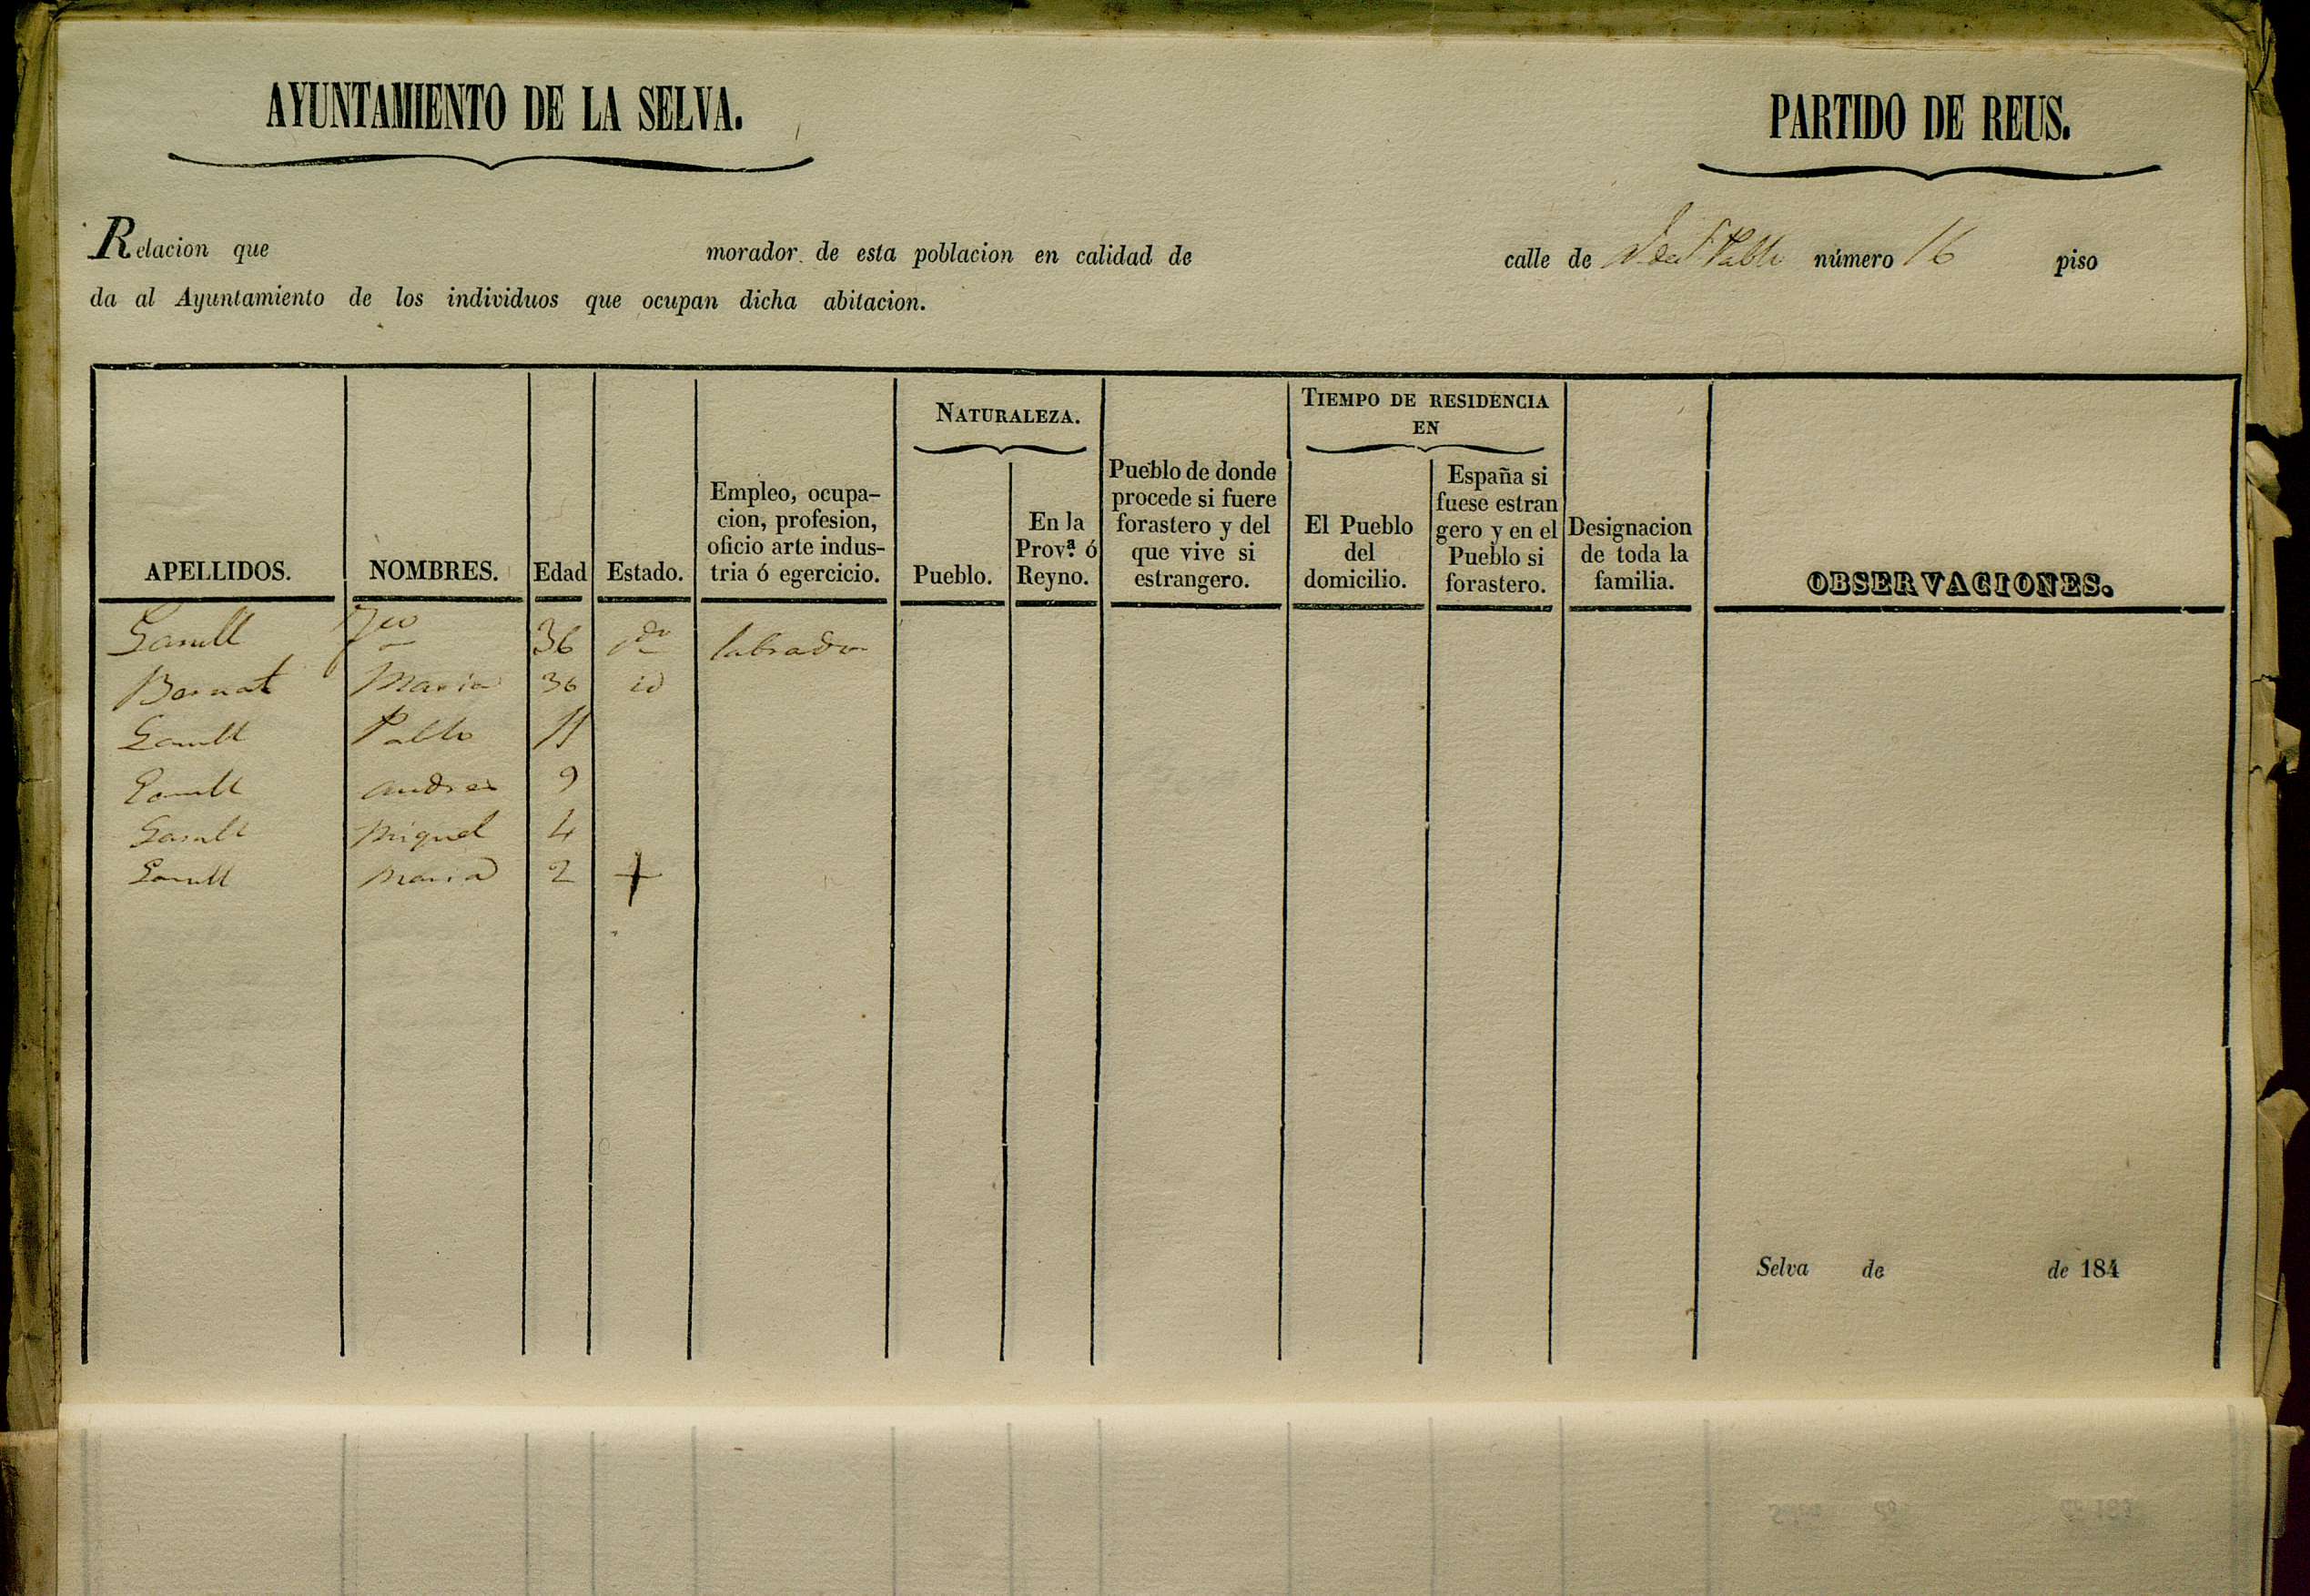 AYUNTAMIENTO DE LA SELVA.
PARTIDO DE REUS.
Relacion que morador de esta poblacion en calidad de calle de Pablo número 16 piso
da al Ayuntamiento de los individuos que ocupan dicha abitacion.
APELLIDOS.
NOMBRES.
Edad
Estado.
Empleo, ocupa-
cion, profesion,
oficio arte indus-
tria ó egercicio.
NATURALEZA.
Pueblo.
En la
Prov.ª ó
Reyno.
Pueblo de donde
procede si fuere
forastero y del
que vive si
estrangero.
TIEMPO DE RESIDENCIA
EN
El Pueblo
del
domicilio.
España si
fuese estran
gero y en el
Pueblo si
forastero.
Designacion
de toda la
familia.
OBSERVACIONES.
36 labrador
Maria 36 id
Pablo 11
Andres 9
Miguel 4
Maria 2 +
Selva de de 184